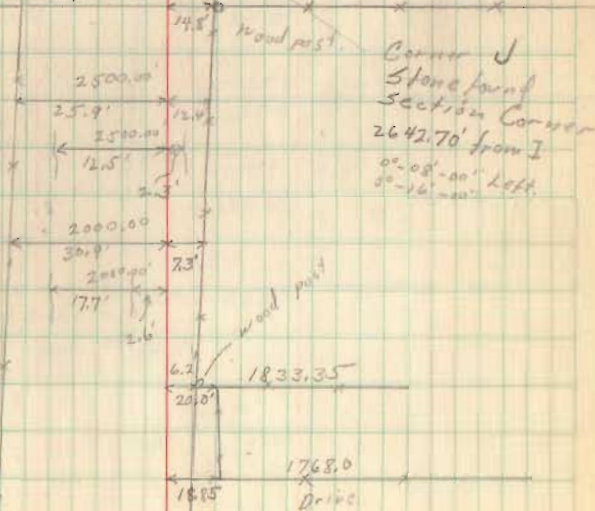 14.8'
wood post.
Corner J
Stone found
Section Corner
2642.70' from I
0°-08'-00"
0°-16'-00" Left.
2500.00'
25.9'
12.4'
2500.00'
12.5'
2.3'
2000.00
30.9'
7.3'
2000.00'
17.7'
2.6'
wood post
6.2'
20.0'
1833.35
1768.0
18.85
Drive